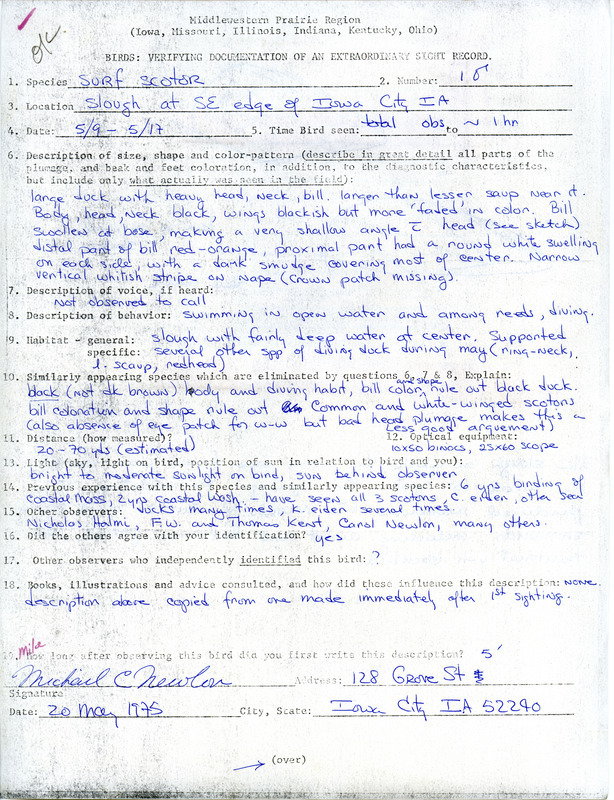 ok
Middlewestern Prairie Region
(Iowa, Missouri, Illinois, Indiana, Kentucky, Ohio)
BIRDS: VERIFYING DOCUMENTATION OF AN EXTRAORDINARY SIGHT RECORD.
1. Species SURF SCOTOR 2. Number: 1 ♂
3. Location Slough at SE edge of Iowa City IA
4. Date: 5/9 - 5/17 5. Time Bird seen: total obs. to ~ 1 hr
6. Description of size, shape and color-pattern (describe in great detail all parts of the
plumage, and beak and feet coloration, in addition, to the diagnostic characteristics,
but include only what actually was seen in the field):
large duck with heavy head, neck, bill. larger than lesser scaup near it.
Body, head, neck black, wings blackish but more 'faded' in color. Bill
swollen at base, making a very shallow angle c̄ head (see sketch)
distal part of bill red-orange, proximal part had a round white swelling
on each side, with a dark smudge covering most of center. Narrow
vertical whitish stripe on nape (crown patch missing).
7. Description of voice, if heard:
Not observed to call
8. Description of behavior: swimming in open water and among reeds, diving.
9. Habitat - general: slough with fairly deep water at center. Supported
specific: several other spp of diving duck during may (ring-neck,
l. scaup, redhead)
10. Similarly appearing species which are eliminated by questions 6, 7 & 8, Explain:
black (not dk brown) body and diving habit, bill color and shape rule out black duck.
bill coloration and shape rule out Common and white-winged scotors
(also absence of eye patch for w-w but bad head plumage makes this a
less good arguement)
11. Distance (how measured)? 12. Optical equipment:
20 - 70 yds (estimated) 10x50 binocs, 25x60 scope
13. Light (sky, light on bird, position of sun in relation to bird and you):
bright to moderate sunlight on bird, sun behind observer
14. Previous experience with this species and similarly appearing species: 6 yrs birding of
coastal Mass, 2 yrs coastal Wash. - have seen all 3 scotors, C. eider, other sea
ducks many times, K. eider several times.
15. Other observers:
Nicholas Halmi, F.W. and Thomas Kent, Carol Newlon, many others.
16. Did the others agree with your identification? yes
17. Other observers who independently identified this bird: ?
18. Books, illustrations and advice consulted, and how did these influence this description: none.
description above copied from one made immediately after 1st sighting.
Mike
19. How long after observing this bird did you first write this description? 5'
Michael C Newlon Address: 128 Grove St
Signature
Date: 20 May 1975 City, State: Iowa City IA 52240
(over)